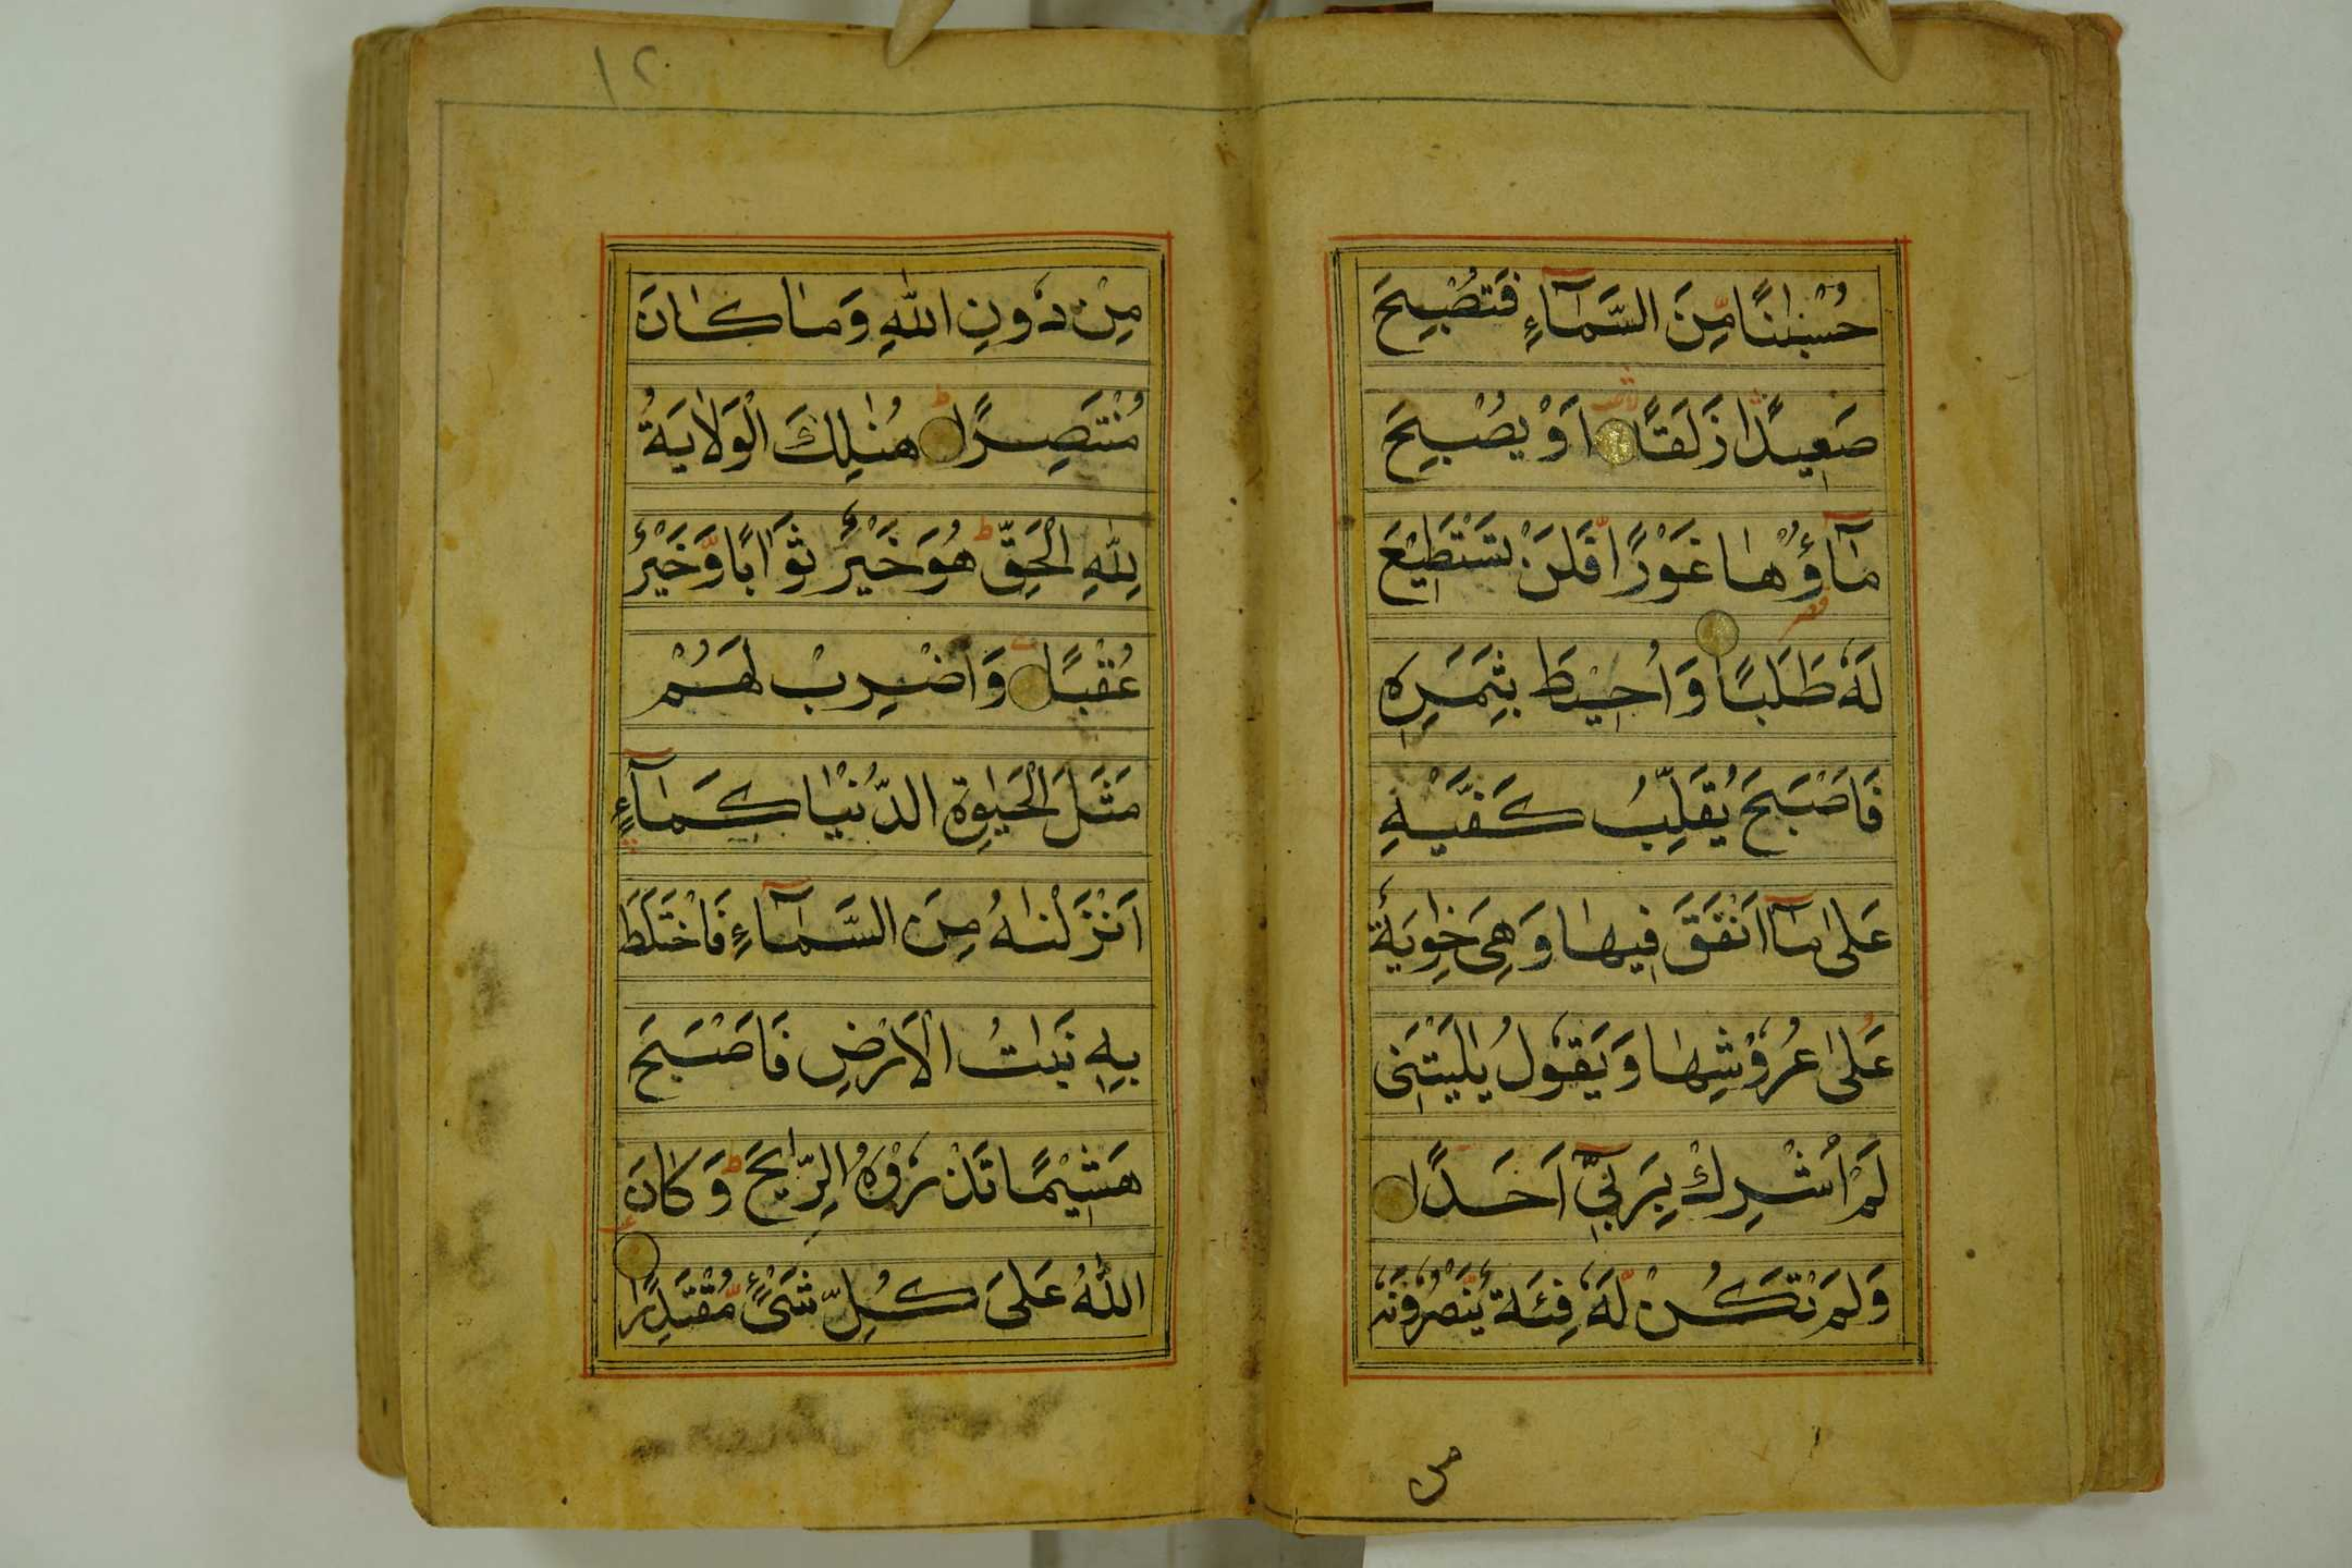 حُسْبَانًا مِّنَ السَّمَآءِ فَتُصْبِحَ
صَعِيدًا زَلَقًا اَوْ يُصْبِحَ
مَآؤُهَا غَوْرًا فَلَنْ تَسْتَطِيْعَ
لَهٗ طَلَبًا وَاُحِيْطَ بِثَمَرِهٖ
فَاَصْبَحَ يُقَلِّبُ كَفَّيْهِ
عَلٰى مَآ اَنْفَقَ فِيهَا وَهِىَ خَاوِيَةٌ
عَلٰى عُرُوْشِهَا وَيَقُوْلُ يٰلَيْتَنِى
لَمْ اُشْرِكْ بِرَبِّىٓ اَحَدًا
وَلَمْ تَكُنْ لَّهٗ فِئَةٌ يَّنْصُرُوْنَهٗ
من
١٢
مِنْ دُونِ اللّٰهِ وَمَا كَانَ
مُنْتَصِرًا هُنَالِكَ الْوَلَايَةُ
لِلّٰهِ الْحَقِّ هُوَ خَيْرٌ ثَوَابًا وَّخَيْرٌ
عُقْبًا وَاضْرِبْ لَهُمْ
مَثَلَ الْحَيٰوةِ الدُّنْيَا كَمَآءٍ
اَنْزَلْنَاهُ مِنَ السَّمَآءِ فَاخْتَلَطَ
بِهٖ نَبَاتُ الْاَرْضِ فَاَصْبَحَ
هَشِيْمًا تَذْرُوْهُ الرِّيَاحُ وَكَانَ
اللّٰهُ عَلٰى كُلِّ شَىْءٍ مُّقْتَدِرًا